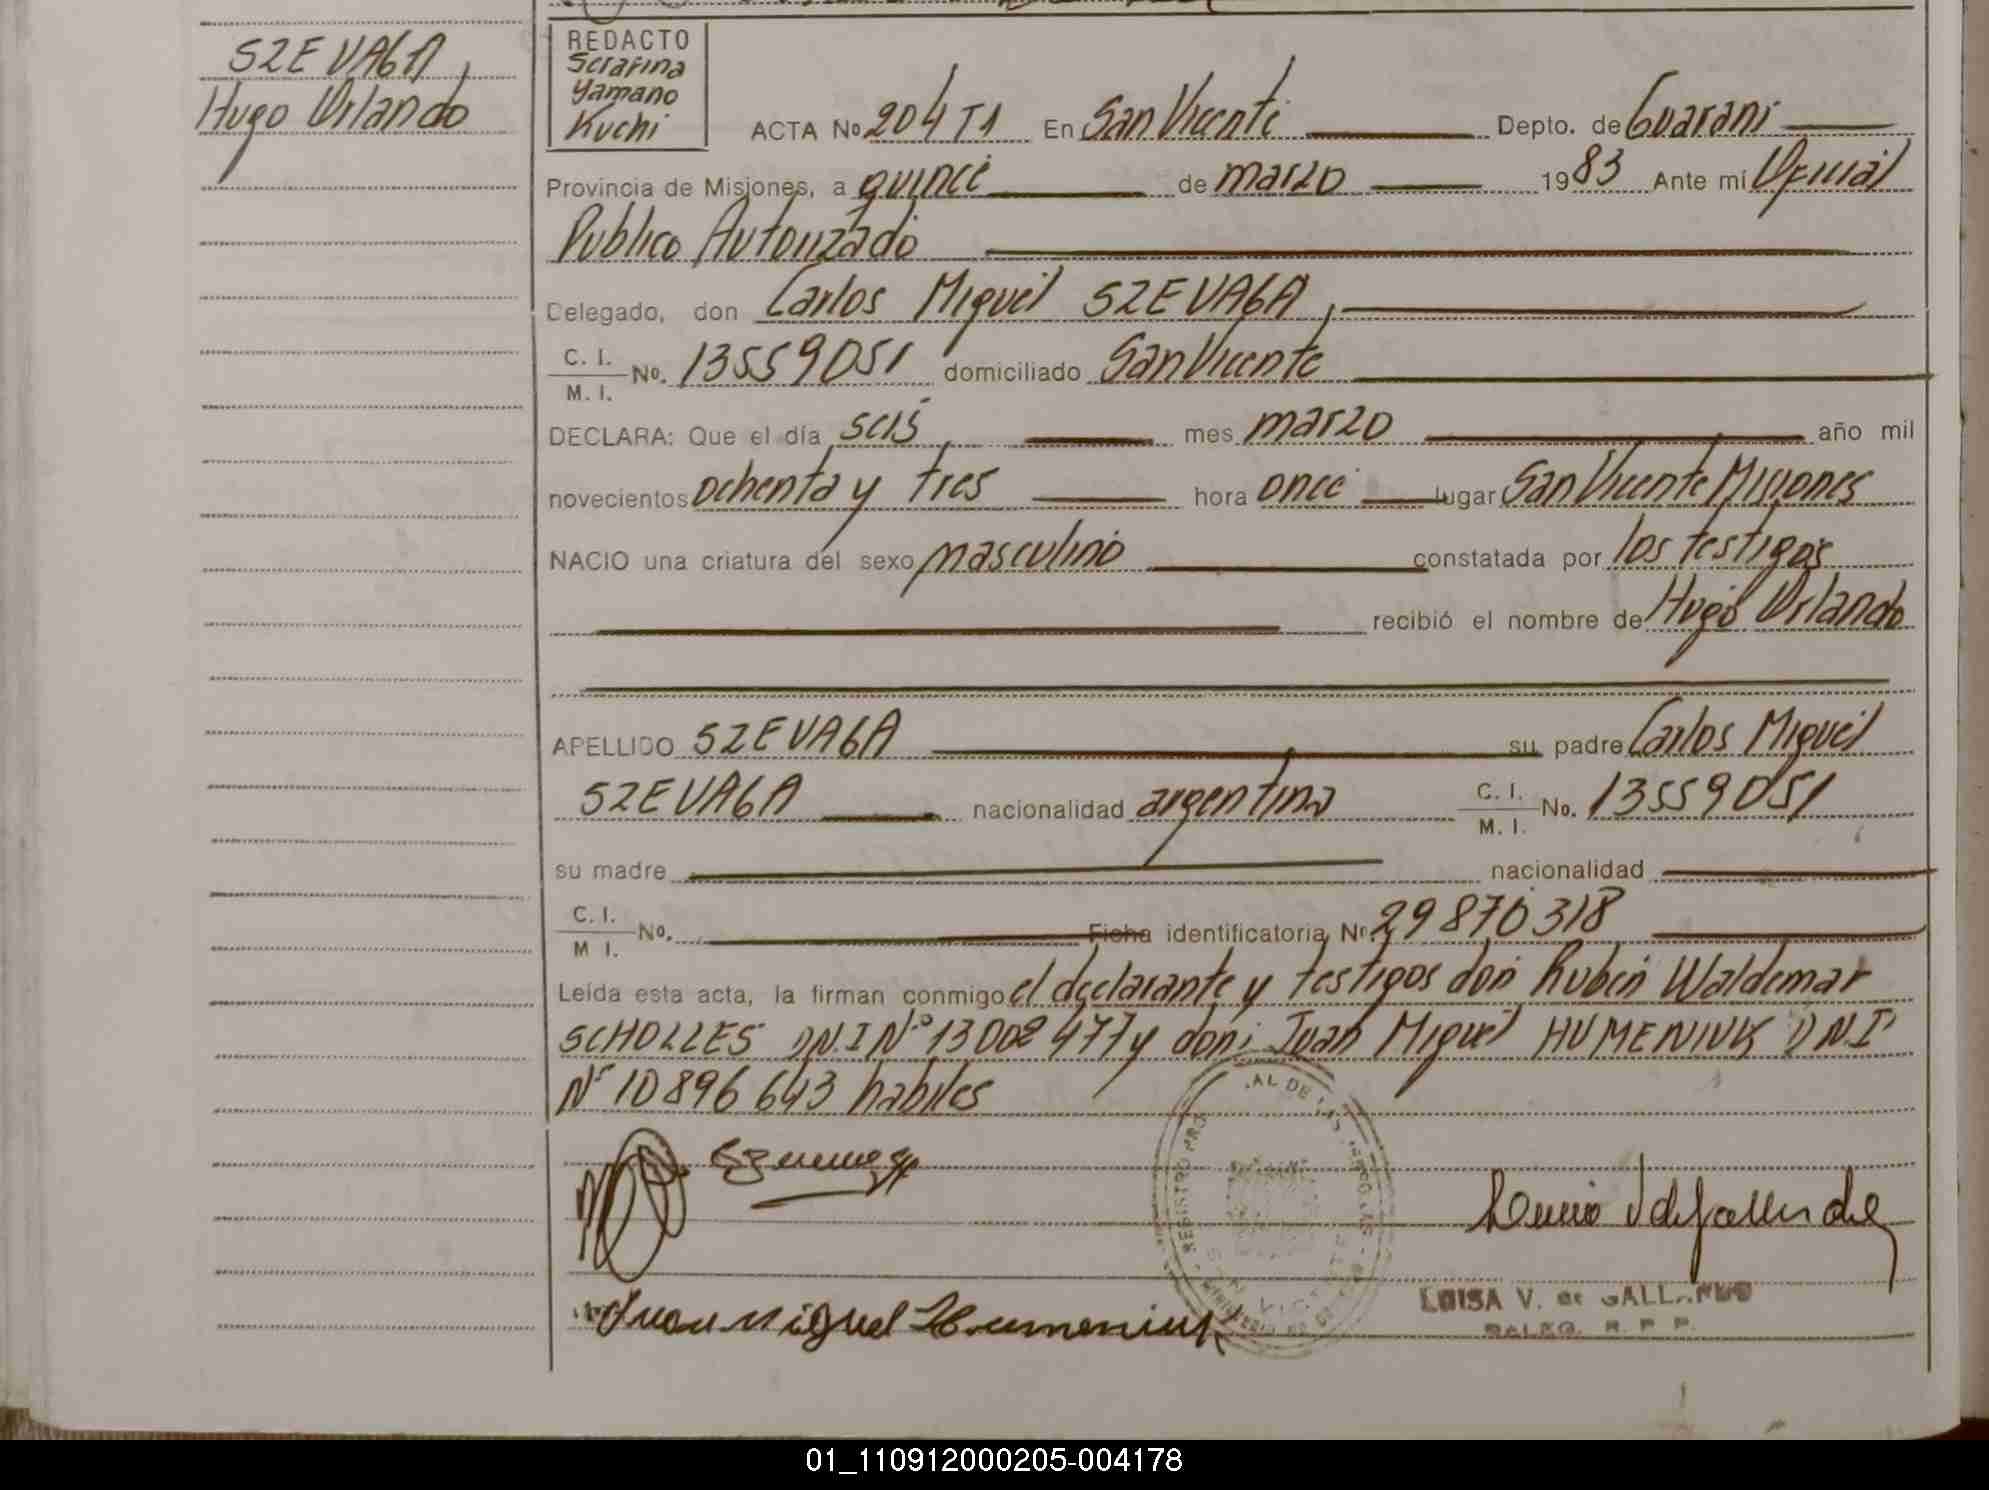 SZEVAGA,
Hugo Orlando
REDACTO
Serafina
Yamano
Kuchi
ACTA No. 204 T1 En San Vicente Depto. de Guaraní
Provincia de Misiones, a quince de marzo 1983 Ante mí Oficial
Publico Autorizado
Delegado, don Carlos Miguel SZEVAGA,
C. I.
M. I. No. 13559051 domiciliado San Vicente
DECLARA: Que el día seis mes marzo año mil
novecientos ochenta y tres hora once lugar San Vicente Misiones
NACIO una criatura del sexo masculino constatada por los testigos
recibió el nombre de Hugo Orlando
APELLIDO SZEVAGA su padre Carlos Miguel
SZEVAGA nacionalidad argentina C. I.
M. I. No. 13559051
su madre nacionalidad
C. I.
M. I. No. Ficha identificatoria No. 29870318
Leída esta acta, la firman conmigo el declarante y testigos don Rubén Waldemar
SCHOLLES D.N.I Nº 13002477 y don: Juan Miguel HUMENIUK D N I
Nº 10896643 habiles
Juan Miguel Humeniuk
LUISA V. de GALLARDO
DALEG. R. P. P.
01_110912000205-004178